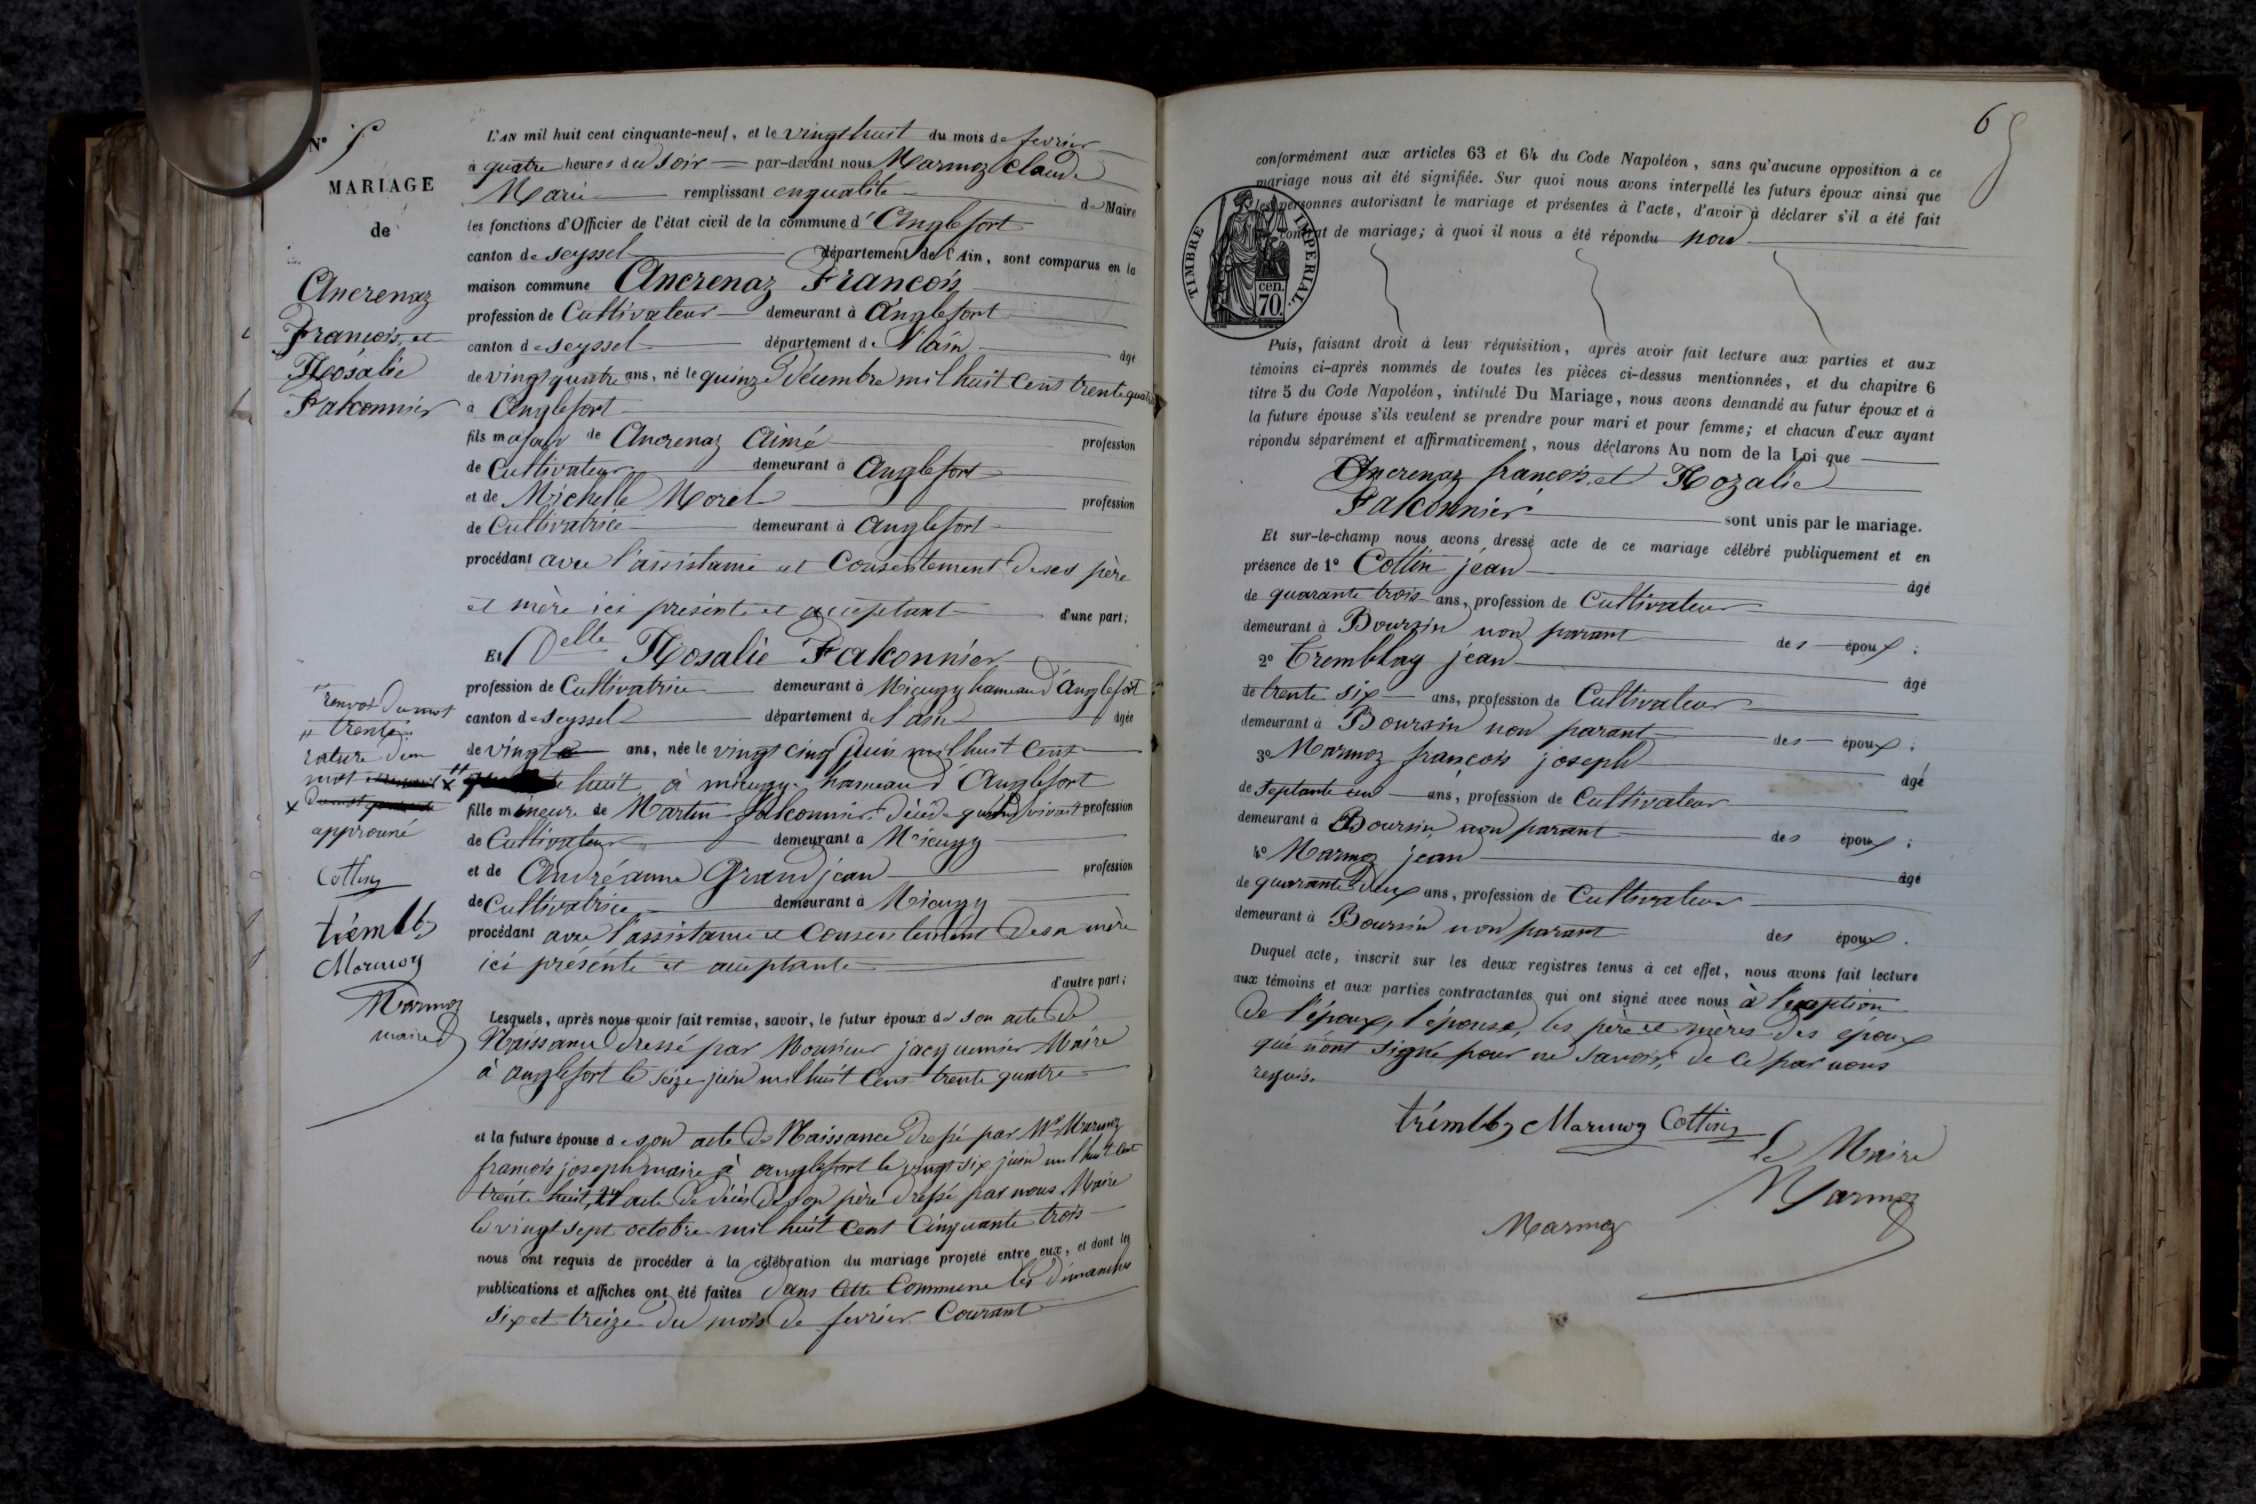 N° 5
MARIAGE
de
Ancrenaz
François et
Rosalie
Falconnier
L'AN mil huit cent cinquante-neuf, et le vingt huit du mois de fevrier
à quatre heures du soir par-devant nous Marmoz Claude
Marie remplissant en qualité de Maire
les fonctions d'Officier de l'état civil de la commune d'Anglefort
canton de Seyssel département de l'Ain, sont comparus en la
maison commune Ancrenaz François
profession de Cultivateur demeurant à Anglefort
canton de Seyssel département de l'ain âgé
de vingt quatre ans, né le quinze décembre mil huit Cent trente quatre
à Anglefort
fils majeur de Ancrenaz Aimé profession
de Cultivateur demeurant à Anglefort
et de Michelle Morel profession
de Cultivatrice demeurant à Anglefort
procédant avec l'assistance et Consentement de ses père
et mère ici présent et acceptant d'une part;
Et Delle Rosalie Falconnier
profession de Cultivatrice demeurant à Mieugy hameau d'Anglefort
canton de Seyssel département de l'ain âgée
de vingt ans, née le vingt cinq juin mil huit Cent
huit à mieugy hameau d'Anglefort
fille mineure de Martin Falconnier décédé quand vivait profession
de Cultivateur demeurant à Mieugy
et de Andréanne Grandjean profession
de Cultivatrice demeurant à Mieugy
procédant avec l'assistance et Consentement de sa mère
ici présente et acceptante
d'autre part;
renvoi du mot
" trente
rature d'un
mot
approuvé
Cottin
trembly
Marmoz
Marmoz
maire
Lesquels, après nous avoir fait remise, savoir, le futur époux de son acte de
Naissance dressé par Monsieur jacquemier Maire
à anglefort le seize juin mil huit Cent trente quatre
et la future épouse de son acte de Naissance dressé par Mr Marmoz
françois joseph maire à anglefort le vingt six juin mil huit Cent
trente huit, et acte de décès de son père dressé par nous Maire
le vingt sept octobre mil huit cent Cinquante trois
nous ont requis de procéder à la célébration du mariage projeté entre eux, et dont les
publications et affiches ont été faites dans cette Commune les dimanches
six et treize du mois de fevrier Courant
6
conformément aux articles 63 et 64 du Code Napoléon, sans qu'aucune opposition à ce
mariage nous ait été signifiée. Sur quoi nous avons interpellé les futurs époux ainsi que
les personnes autorisant le mariage et présentes à l'acte, d'avoir à déclarer s'il a été fait
contrat de mariage; à quoi il nous a été répondu non
TIMBRE IMPERIAL
cen.
70.
Puis, faisant droit à leur réquisition, après avoir fait lecture aux parties et aux
témoins ci-après nommés de toutes les pièces ci-dessus mentionnées, et du chapitre 6
titre 5 du Code Napoléon, intitulé Du Mariage, nous avons demandé au futur époux et à
la future épouse s'ils veulent se prendre pour mari et pour femme; et chacun d'eux ayant
répondu séparément et affirmativement, nous déclarons Au nom de la Loi que
Ancrenaz françois et Rozalie
Falconnier sont unis par le mariage.
Et sur-le-champ nous avons dressé acte de ce mariage célébré publiquement et en
présence de 1° Cottin jean âgé
de quarante trois ans, profession de Cultivateur
demeurant à Boursin non parant des époux;
2° Tremblay jean âgé
de trente six ans, profession de Cultivateur
demeurant à Boursin non parant des époux;
3° Marmoz françois joseph âgé
de septante un ans, profession de Cultivateur
demeurant à Boursin non parant des époux;
4° Marmoz jean âgé
de quarante deux ans, profession de Cultivateur
demeurant à Boursin non parant des époux.
Duquel acte, inscrit sur les deux registres tenus à cet effet, nous avons fait lecture
aux témoins et aux parties contractantes qui ont signé avec nous à l'exception
de l'époux, l'épouse, les père et mères des époux
qui n'ont signé pour ne savoir, de ce par nous
requis.
trembly Marmoz Cottin
le Maire
Marmoz
Marmoz